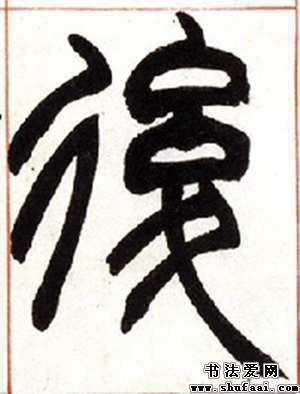 復
书法爱网
www.shufaai.com